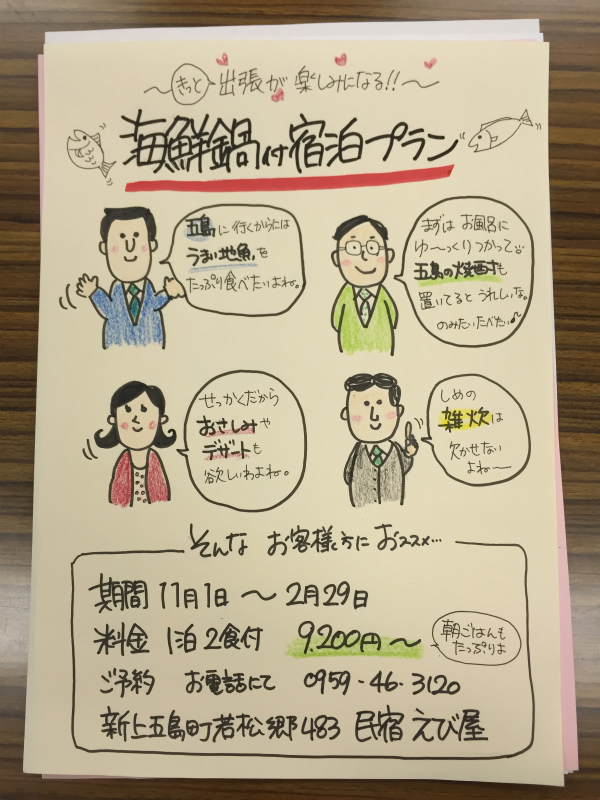 ～きっと出張が楽しみになる!!～
海鮮鍋付宿泊プラン
五島に行くからには
うまい地魚を
たっぷり食べたいよね。
まずは お風呂に
ゆ～っくりつかって
五島の焼酎も
置いてるとうれしいな。
のみたいたべたい♪
せっかくだから
おさしみや
デザートも
欲しいわよね。
しめの
雑炊は
欠かせない
よねー
そんな お客様方に おススメ…
期間 11月1日 ～ 2月29日
料金 1泊2食付 9.200円～
朝ごはんも
たっぷりよ
ご予約 お電話にて 0959-46-3120
新上五島町若松郷483 民宿えび屋